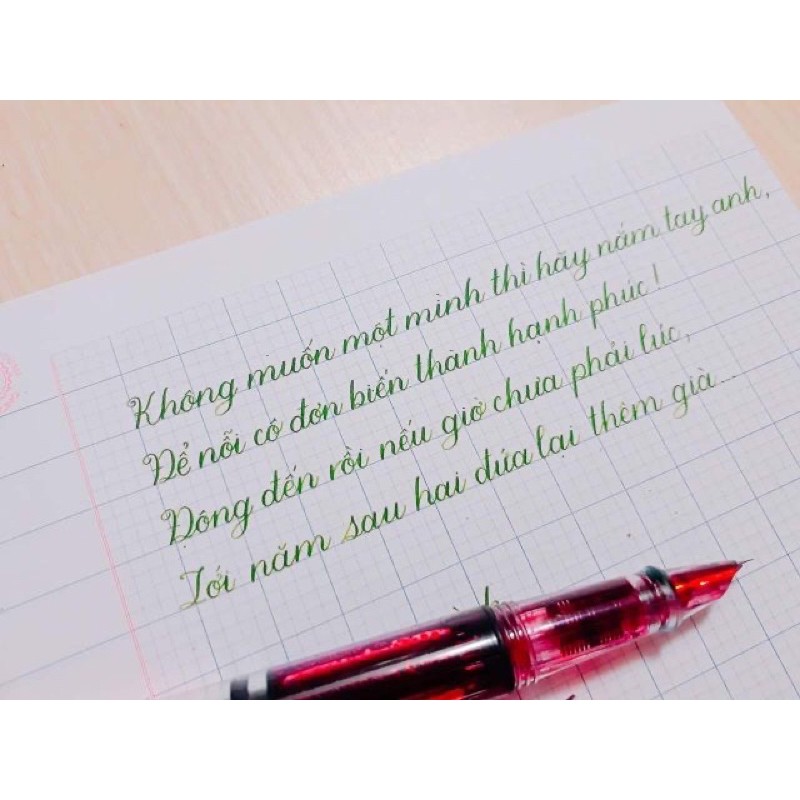 Không muốn một mình thì hãy nắm tay anh,
Để nỗi cô đơn biến thành hạnh phúc!
Đông đến rồi nếu giờ chưa phải lúc,
Tới năm sau hai đứa lại thêm già...